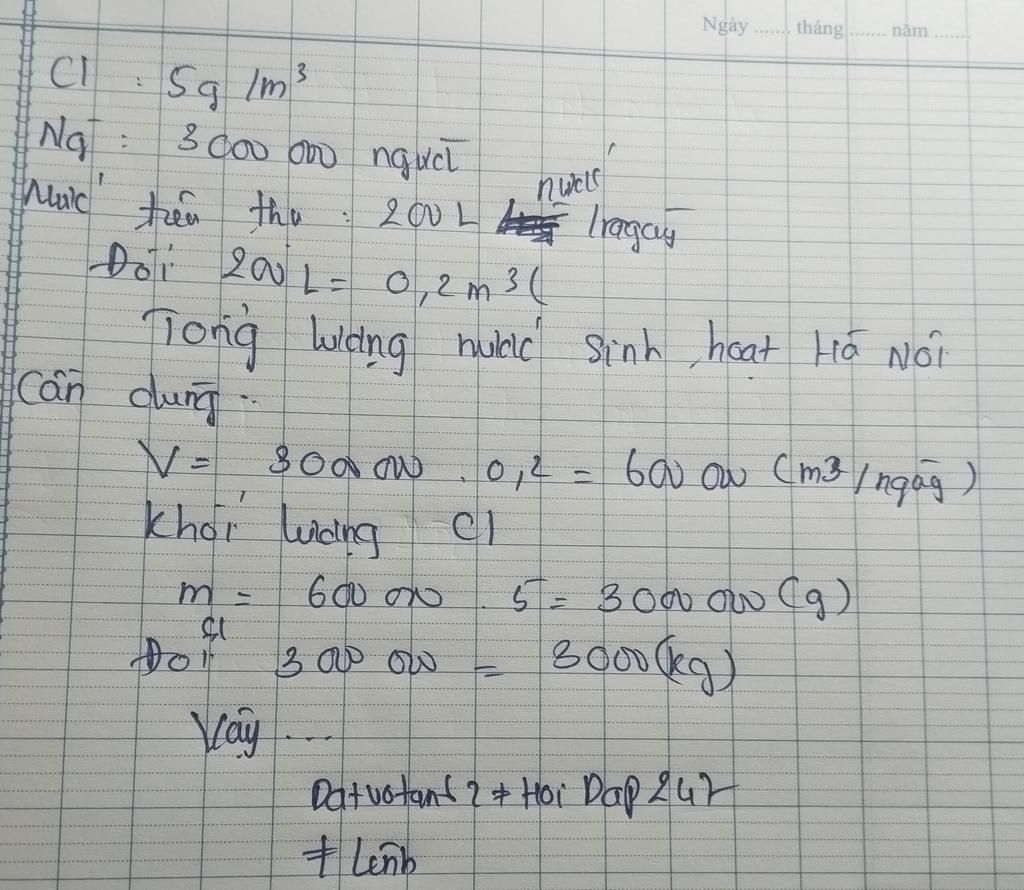 Ngày ....... tháng ....... năm .......
Cl : 5g /m³
Ng : 3000 000 người
Nước tiêu thụ : 200 L nước /ngày
Đổi 200 L = 0,2 m³(
Tổng lượng nước sinh hoạt Hà Nội
Cần dùng ..
V = 3000 000 . 0,2 = 600 000 (m3/ngày)
Khối lượng Cl
m Cl = 600 000 . 5 = 3000 000 (g)
Đổi 3 000 000 = 3000 (kg)
Vậy ...
Datvotant2 + Hoi Dap 247